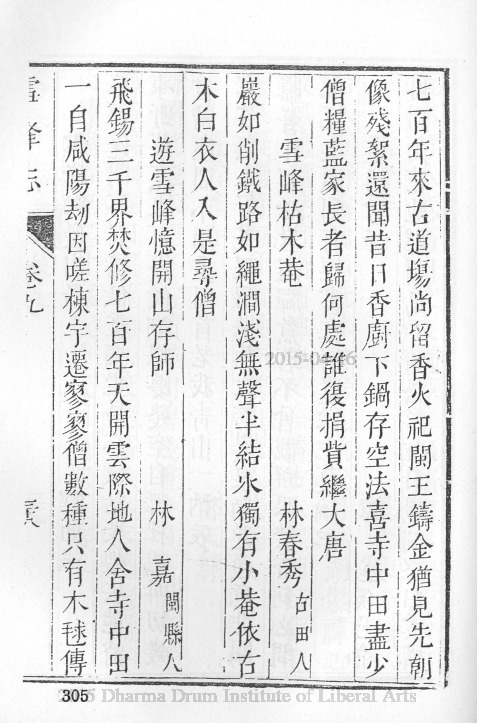 七百年來古道塲尚留香火祀閩王鑄金猶見先朝
像殘絮還聞昔日香廚下鍋存空法喜寺中田盡少
僧糧藍家長者歸何處誰復捐貲繼大唐
雪峰枯木菴 林春秀 古田人
巖如削鐵路如繩澗淺無聲半結氷獨有小菴依古
木白衣人入是尋僧
遊雪峰憶開山存師 林嘉 閩縣人
飛錫三千界焚修七百年天開雲際地人舍寺中田
一自咸陽劫因嗟棟宇遷寥寥僧數種只有木毬傳
雪峰志 卷九
305
2015 Dharma Drum Institute of Liberal Arts